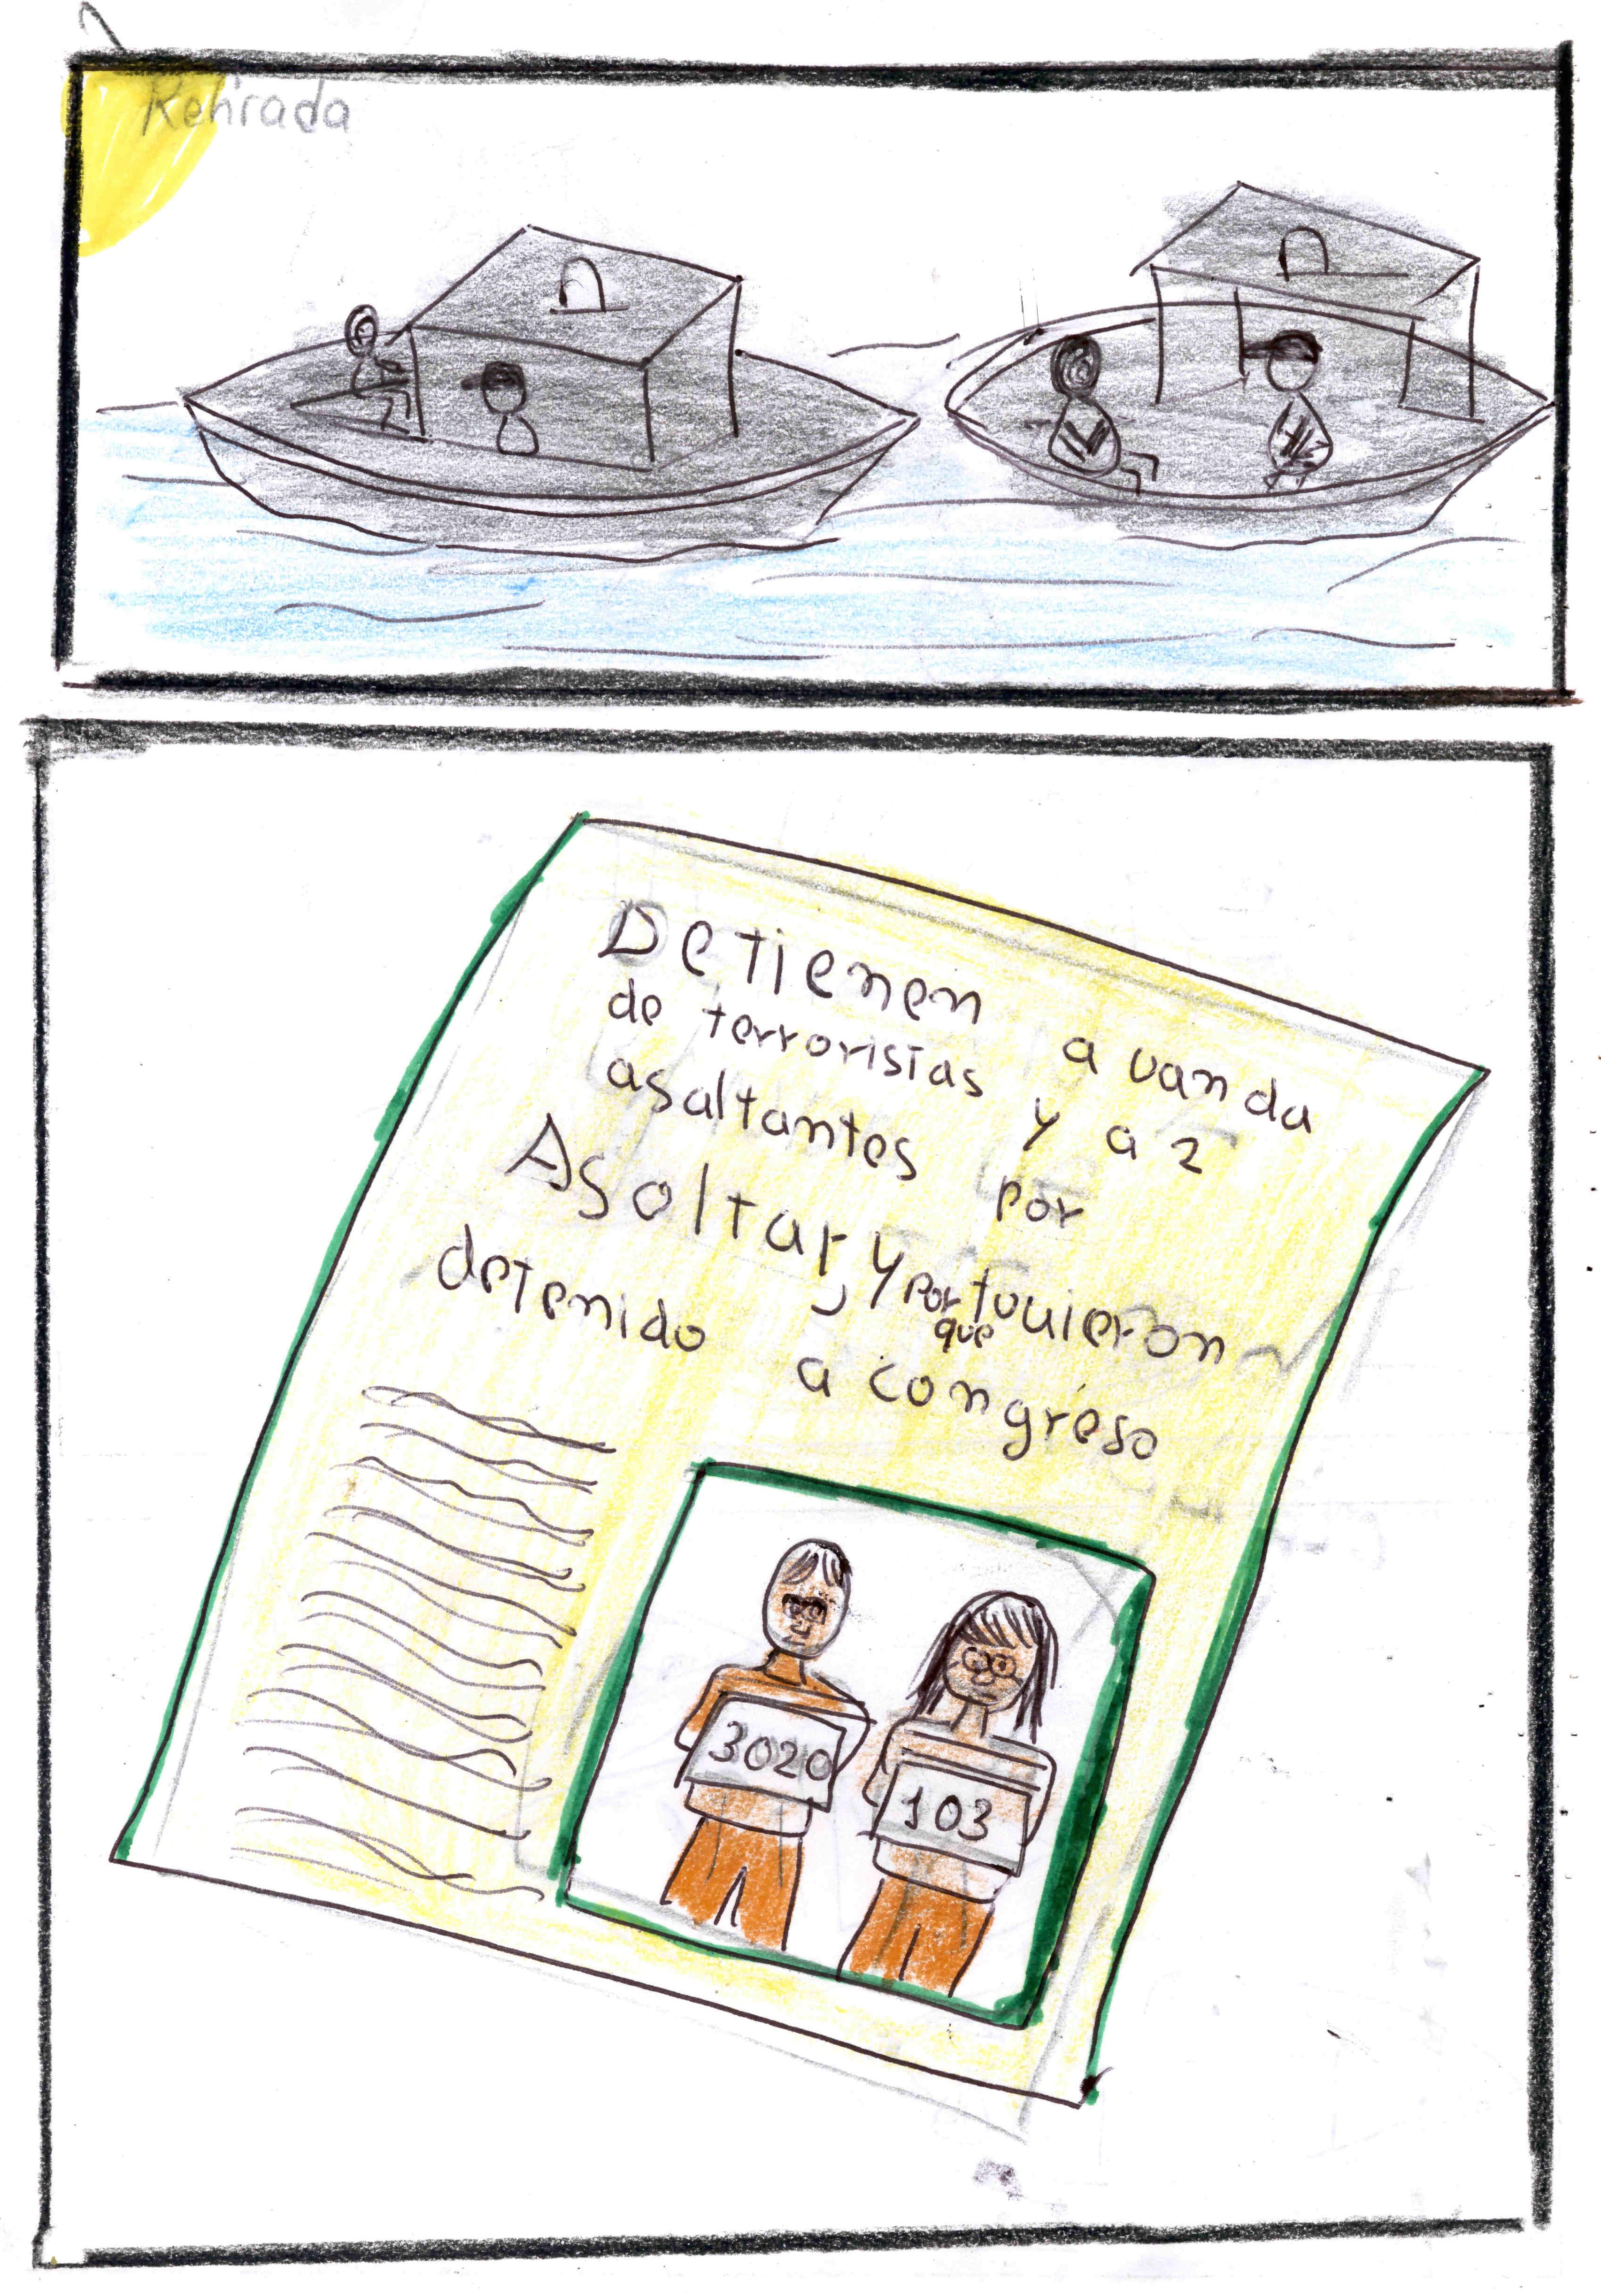 Retirada
DeTienen a vanda
de terroristas y a 2
asaltantes por
Asaltar, y por que tuvieron
detenido a congreso
3020
103